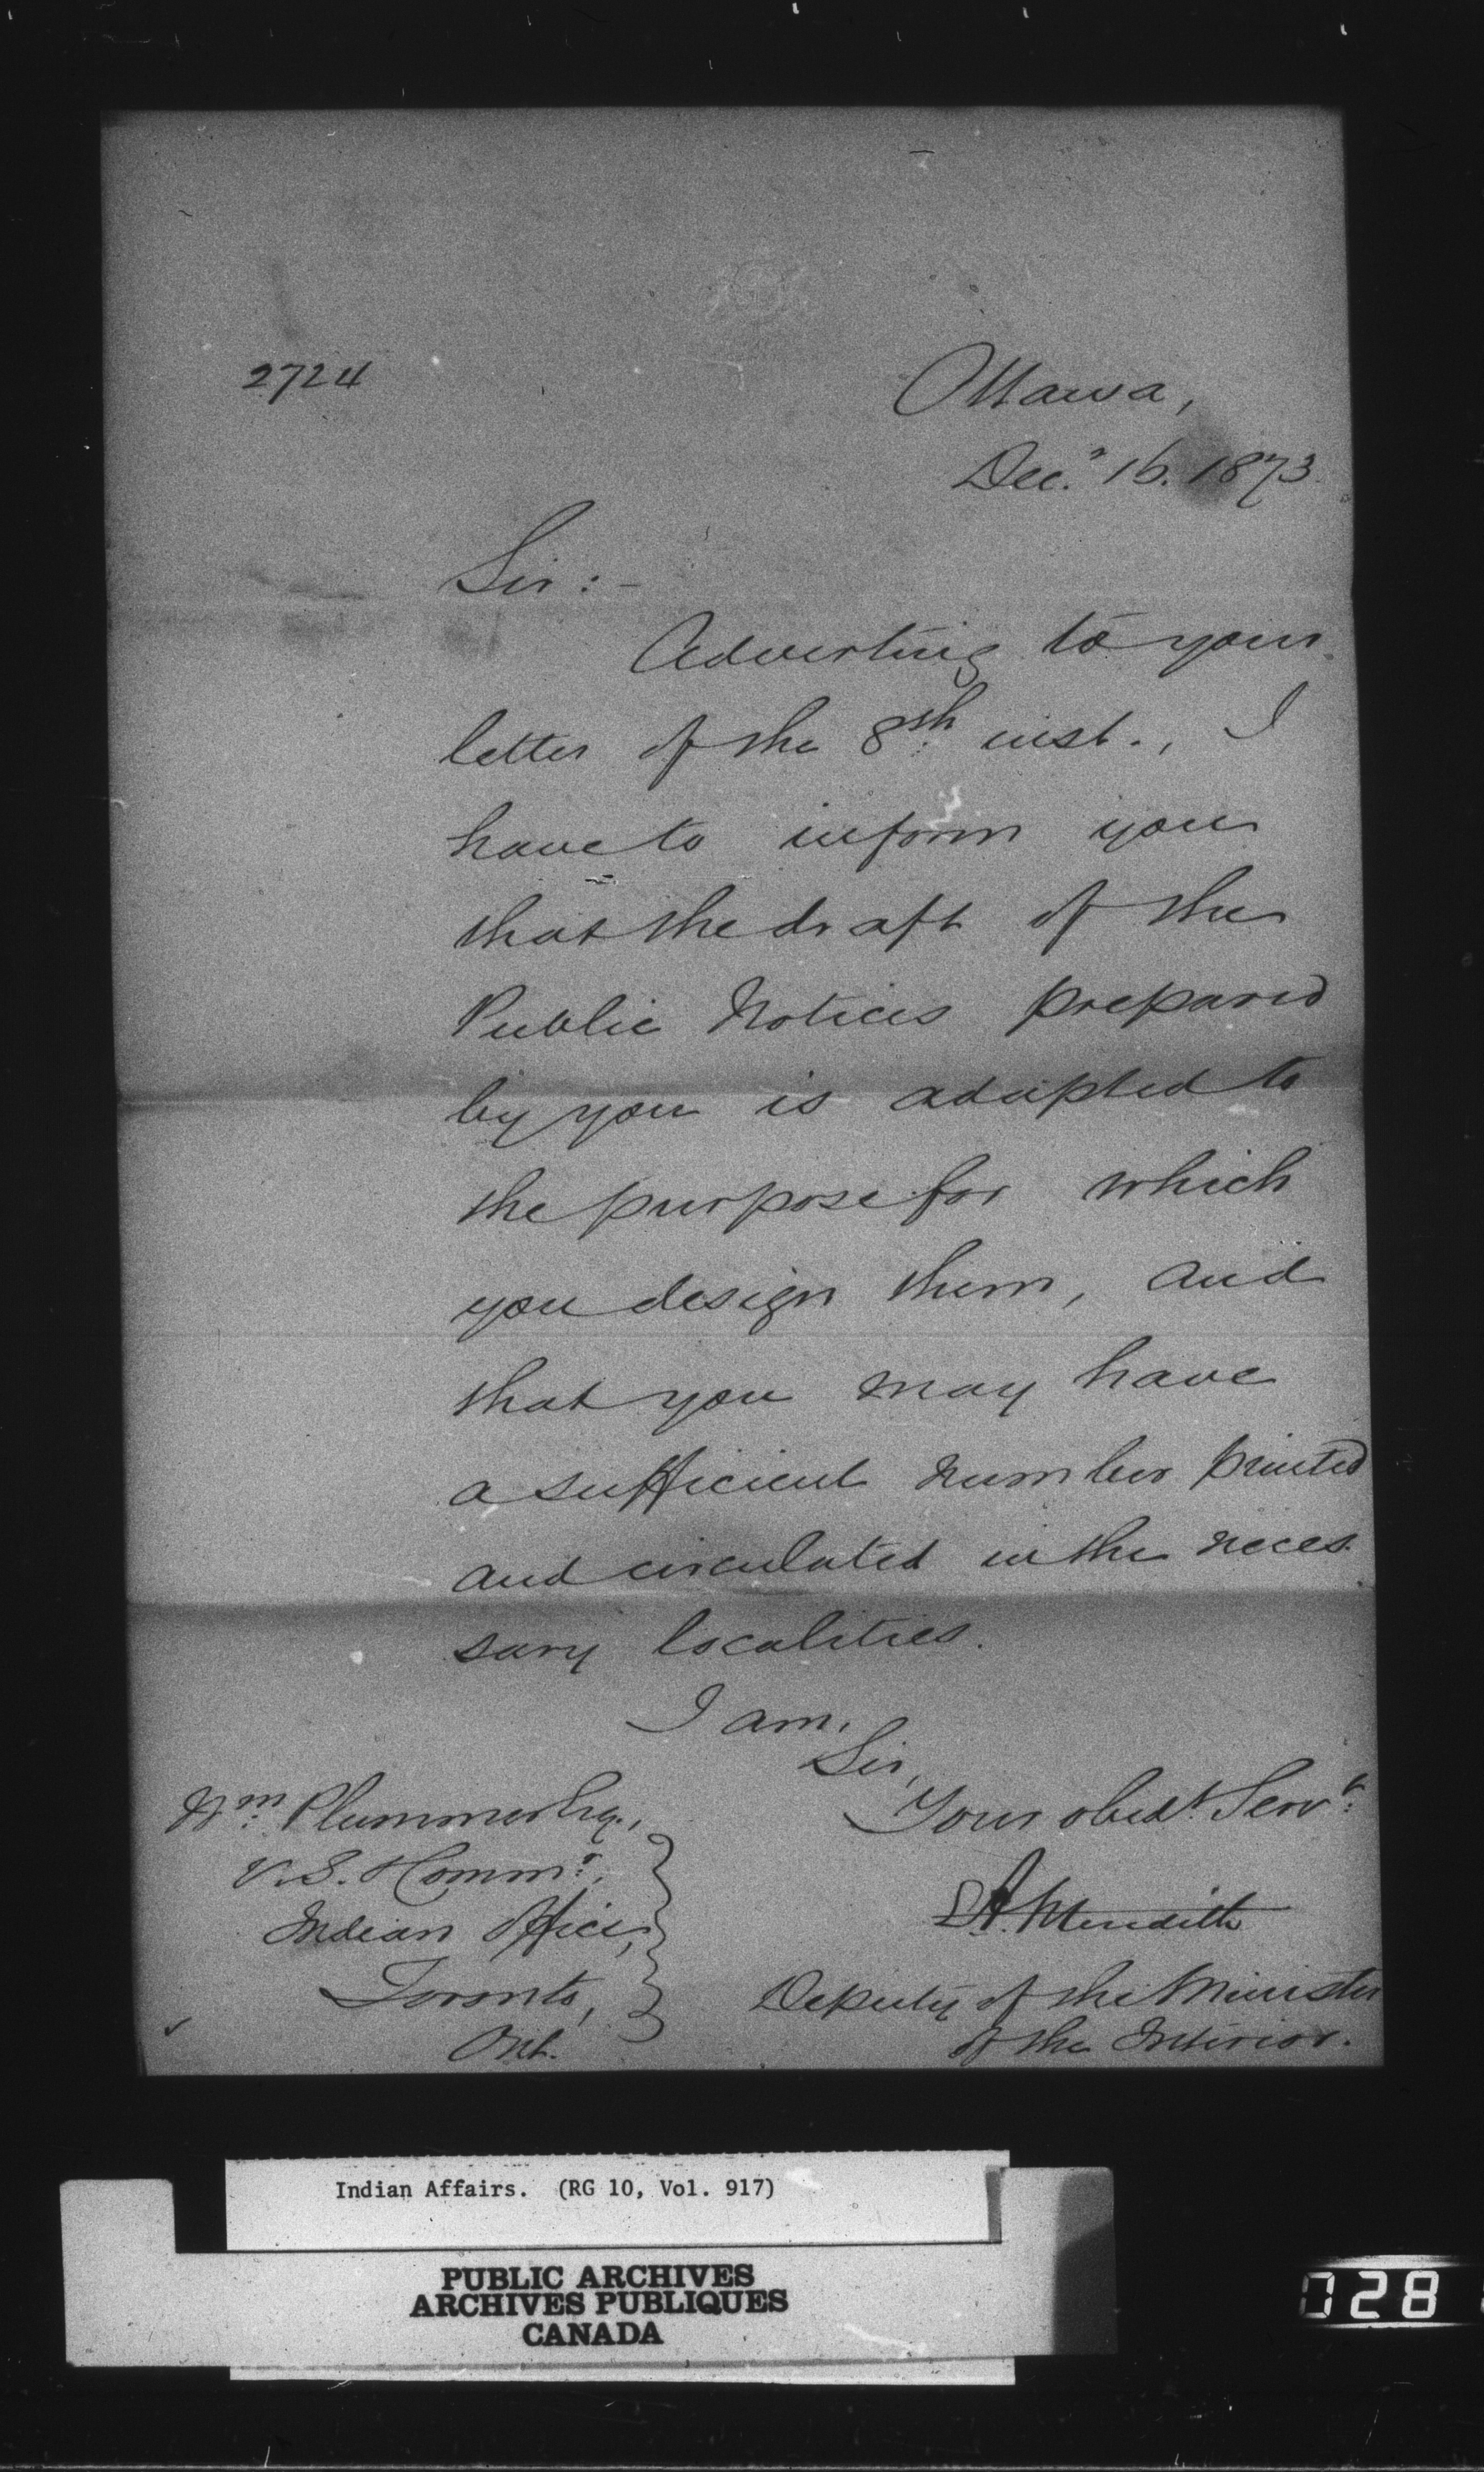 2724
Ottawa,
Dec.r 16. 1873.
Sir:-
Adverting to your
letter of the 8th inst., I
have to inform you
that the draft of the
Public Notices prepared
by you is adapted to
the purpose for which
you design them, and
that you may have
a sufficient number printed
and circulated in the neces
sary localities.
I am,
Sir,
Your obedt. Servt.
Wm. Plummer Esq.,
V. S. Commr.,
Indian Office,
Toronto,
Ont.
E A Meredith
Deputy of the Minister
of the Interior.
Indian Affairs. (RG 10, Vol. 917)
PUBLIC ARCHIVES
ARCHIVES PUBLIQUES
CANADA
028